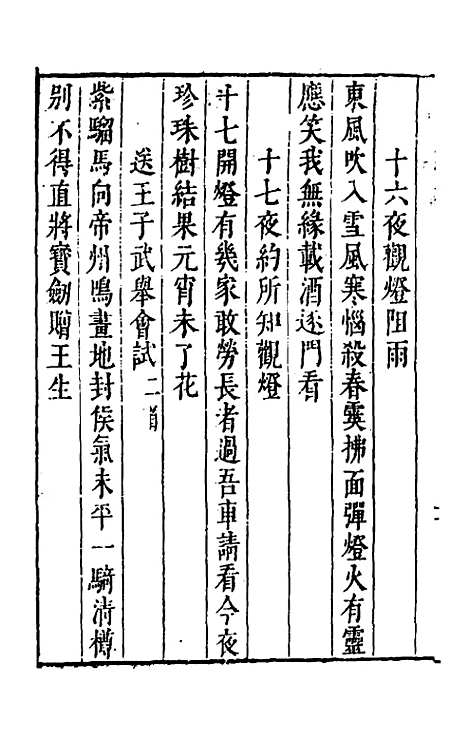 十六夜觀燈阻雨
東風吹入雪風寒惱殺春霙拂面彈燈火有靈
應笑我無緣載酒逐門看
十七夜約所知觀燈
十七開燈有幾家敢勞長者過吾車請看今夜
珍珠樹結果元宵未了花
送王子武舉會試二首
紫騮馬向帝州鳴畫地封侯氣未平一騎清樽
別不得直將寳劒贈王生